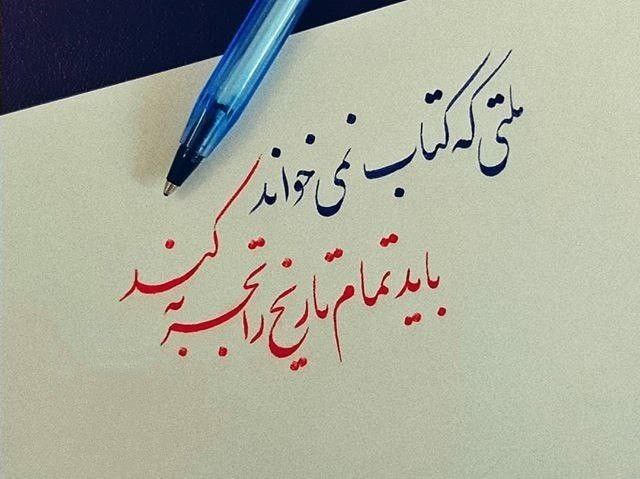 ملتی که کتاب نمی خواند
باید تمام تاریخ را تجربه کند